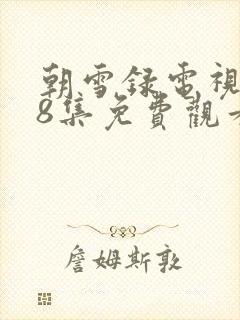 朝雪録電視
8集免費觀
詹姆斯敦